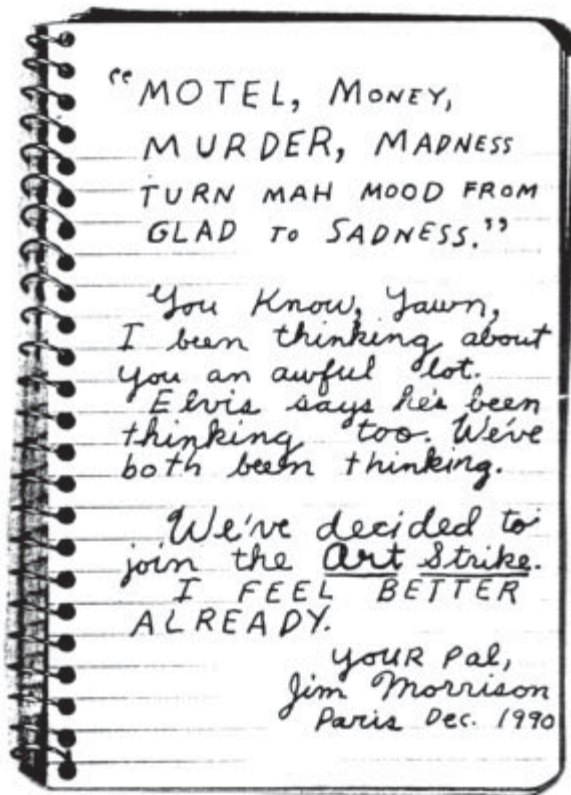 “MOTEL, MONEY,
MURDER, MADNESS
TURN MAH MOOD FROM
GLAD TO SADNESS.”
You Know, Yawn,
I been thinking about
you an awful lot.
Elvis says he's been
thinking too. We've
both been thinking.
We've decided to
join the Art Strike.
I FEEL BETTER
ALREADY.
YOUR Pal,
Jim Morrison
Paris Dec. 1990